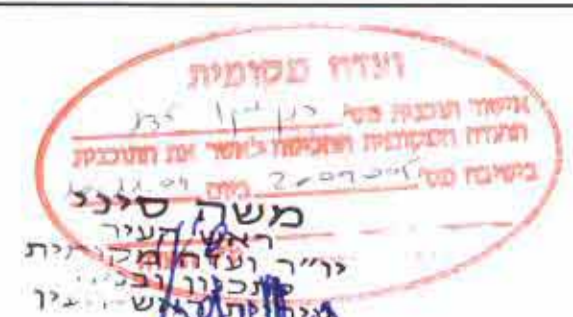 ועדה מקומית
אישור תוכנית מס'
הועדה המקומית החליטה לאשר את התוכנית
בישיבה מס' 2009005 ביום
משה סינל
ראש העיר
יו"ר ועדה מקומית
לתכנון ובניה
ראש העין